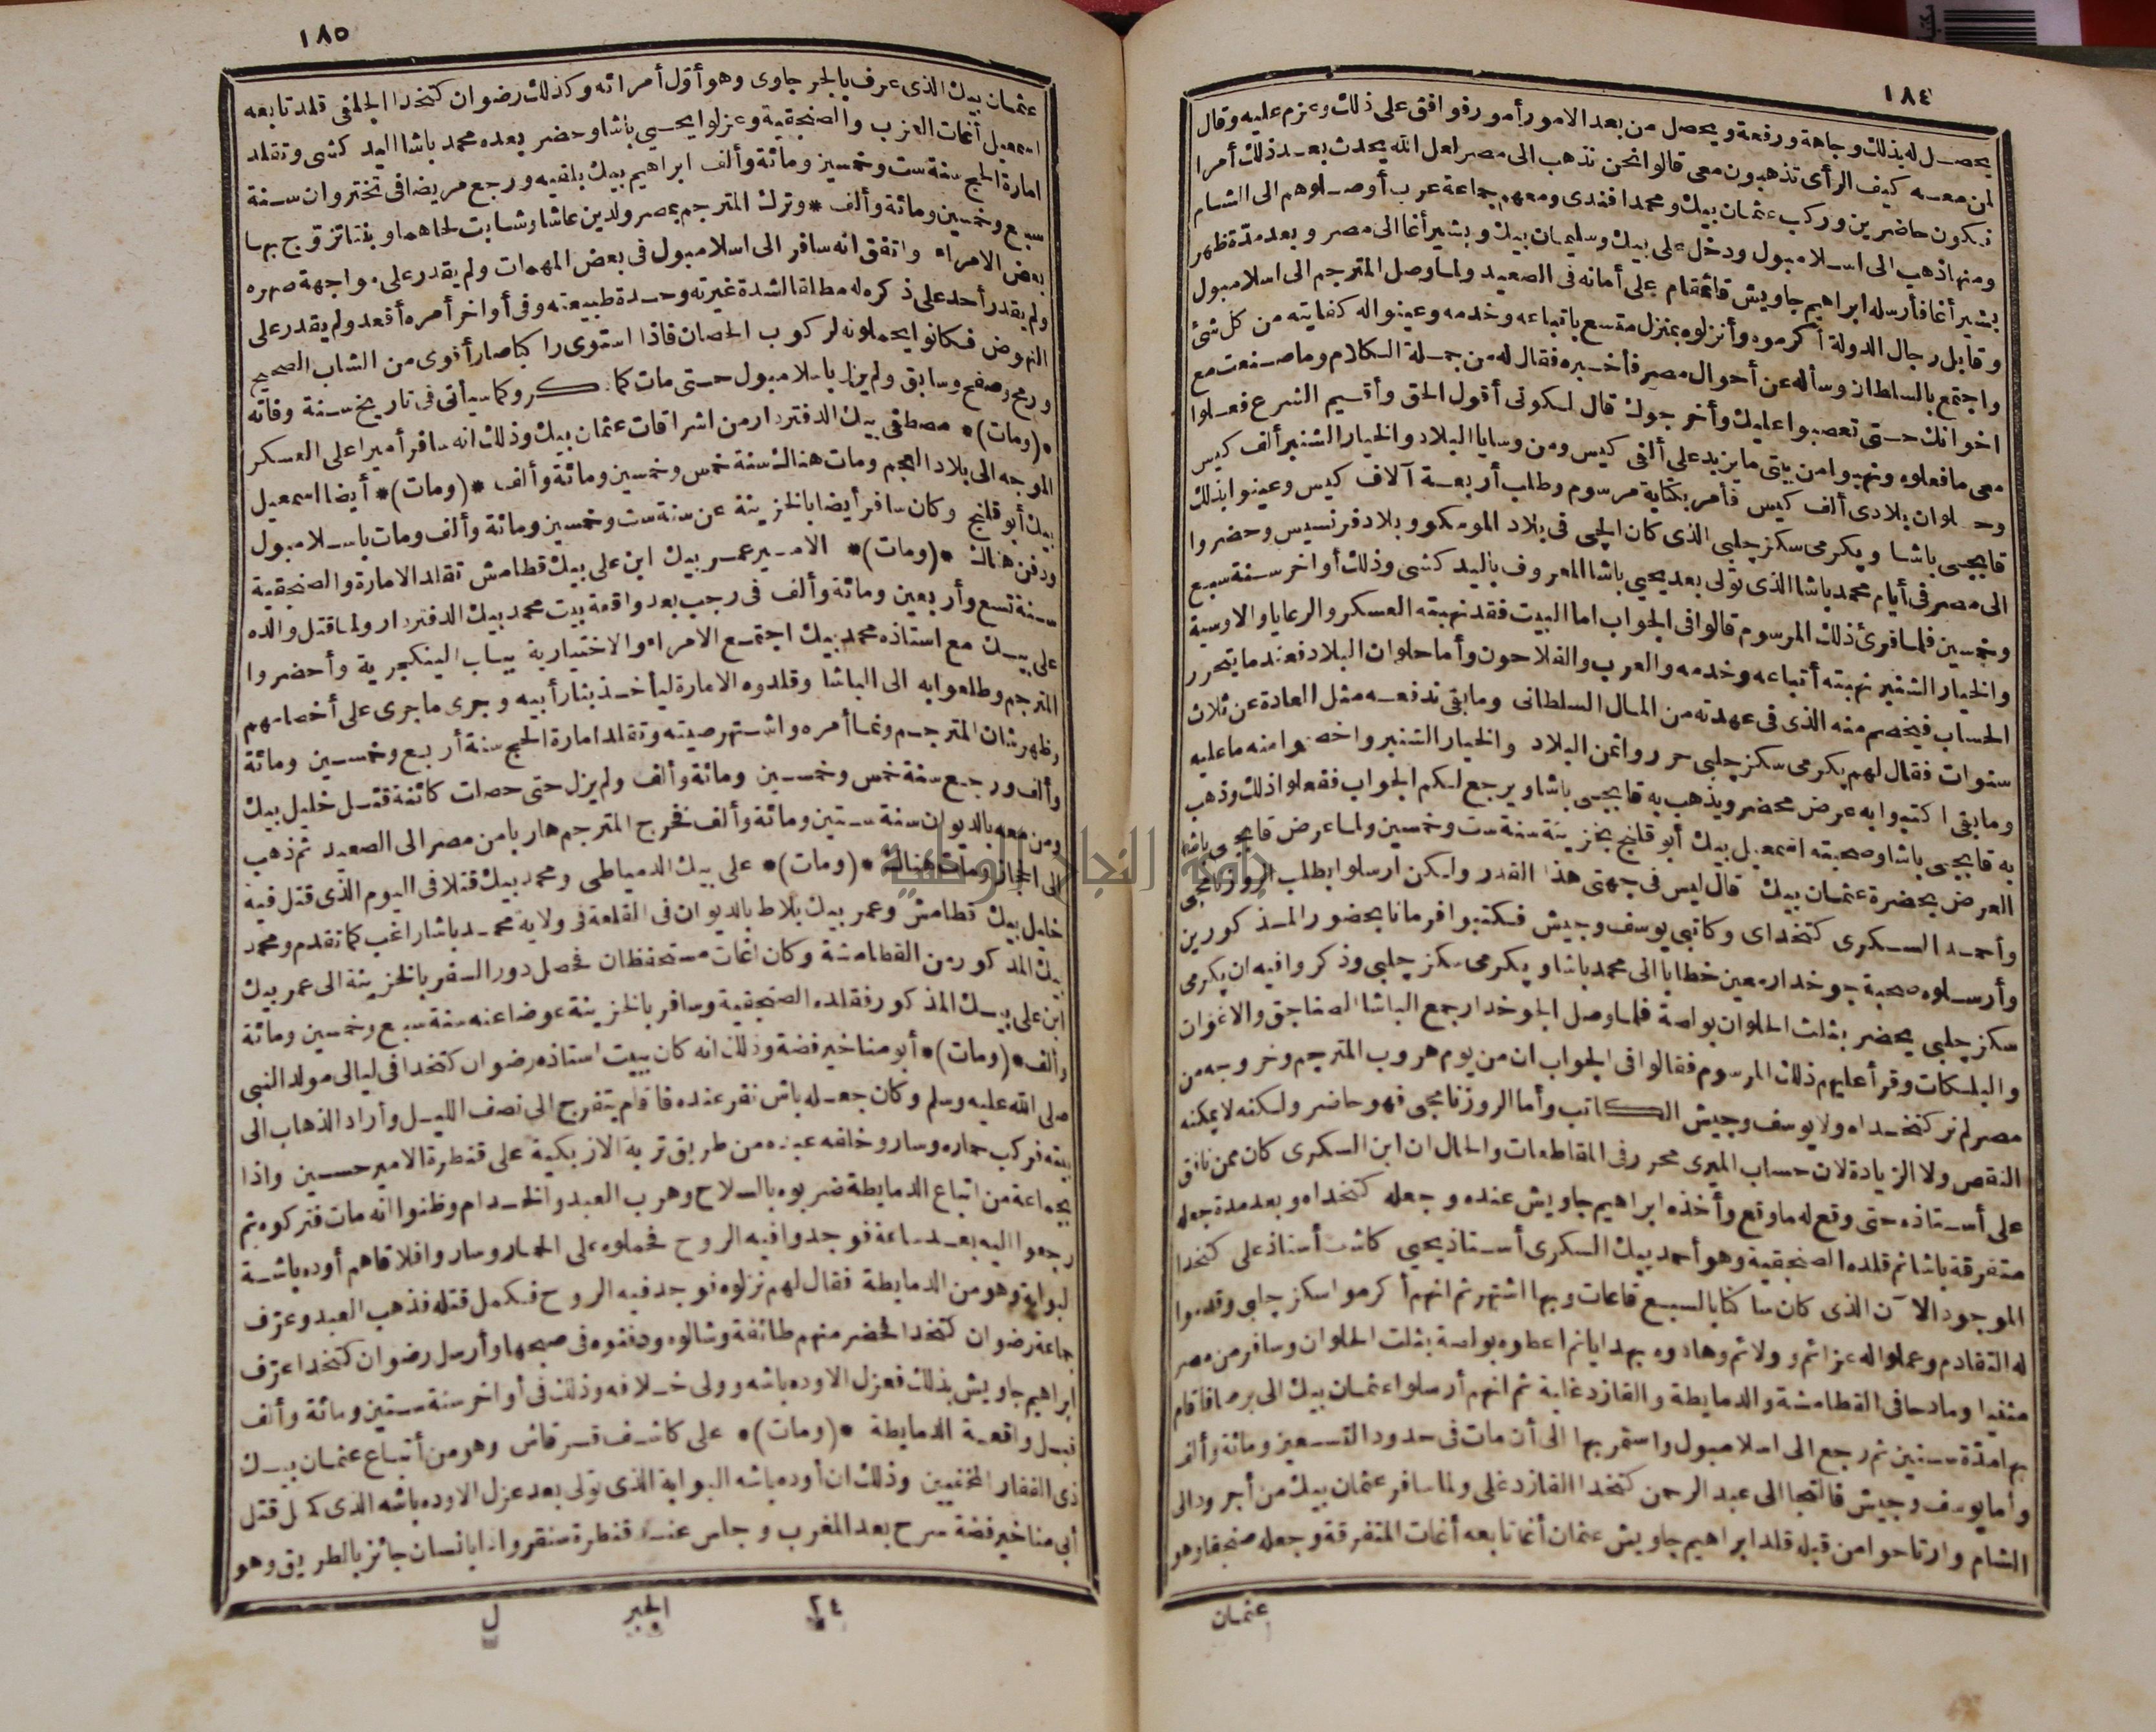 ١٨٤
يحصل له بذلك وجاهة ورفعة ويحصل من بعد الامور أمور فوافق على ذلك وعزم عليه وقال
لمن معه كيف الرأى تذهبون معى قالوا نحن نذهب الى مصر لعل الله يحدث بعد ذلك أمرا
نكون حاضرين وركب عثمان بيك ومحمد افندى ومعهم جماعة عرب أوصلوهم الى الشام
ومنها ذهب الى اسلامبول ودخل على بيك وسليمان بيك وبشير أغا الى مصر وبعد مدّة ظهر
بشير أغا فأرسله ابراهيم جاويش قائمقام على أمانه فى الصعيد ولما وصل المترجم الى اسلامبول
وقابل رجال الدولة أكرموه وأنزلوه بمنزل متسع باتباعه وخدمه وعينوا له كفايته من كل شئ
واجتمع بالسلطان وسأله عن أحوال مصر فأخبره فقال له من جملة الكلام وما صنعت مع
اخوانك حتى تعصبوا عليك وأخرجوك قال لكونى أقول الحق وأقيم الشرع فعلوا
معى ما فعلوه ونهبوا من بيتى ما يزيد على ألفى كيس ومن وسايا البلاد والخيار الشنبر ألف كيس
وحلوان بلادى ألف كيس فأمر بكتابة مرسوم وطلب أربعة آلاف كيس وعينوا بذلك
قابجى باشا ويكرمى سكز جلبى الذى كان الجى فى بلاد الموسكو وبلاد فرنسيس وحضروا
الى مصر فى أيام محمد باشا الذى تولى بعد يحيى باشا المعروف باليد كشى وذلك أواخر سنة سبع
وخمسين فلما قرئ ذلك المرسوم قالوا فى الجواب اما البيت فقد نهبته العسكر والرعايا والاوسية
والخيار الشنبر نهبته أتباعه وخدمه والعرب والفلاحون وأما حلوان البلاد فعند ما يتحرر
الحساب فيخصم منه الذى فى عهدته من المال السلطانى وما بقى ندفعه مثل العادة عن ثلاث
سنوات فقال لهم يكرمى سكز جلبى حرروا ثمن البلاد والخيار الشنبر واخصموا منه ما عليه
وما بقى اكتبوا به عرض محضر ويذهب به قابجى باشا ويرجع لكم الجواب ففعلوا ذلك وذهب
به قابجى باشا وصحبته اسمعيل بيك أبو قلنج بخزينة سنة ست وخمسين ولما عرض قابجى باشا
العرض بحضرة عثمان بيك قال ليس فى جهتى هذا القدر ولكن ارسلوا بطلب الروزنامجى
وأحمد السكرى كتخداى وكاتبى يوسف وجيش فكتبوا فرمانا بحضور المذكورين
وأرسلوه صحبة جوخدار معين خطابا الى محمد باشا ويكرمى سكز جلبى وذكروا فيه ان يكرمى
سكز جلبى يحضر بثلث الحلوان بولصة فلما وصل الجوخدار جمع الباشا الصناجق والاغوات
والبلكات وقرأ عليهم ذلك المرسوم فقالوا فى الجواب ان من يوم هروب المترجم وخروجه من
مصر لم نر كتخداه ولا يوسف وجيش الكاتب وأما الروزنامجى فهو حاضر ولكنه لا يمكنه
النقص ولا الزيادة لان حساب الميرى محرر فى المقاطعات والحال ان ابن السكرى كان ممن نافق
على أستاذه حتى وقع له ما وقع وأخذه ابراهيم جاويش عنده وجعله كتخداه وبعد مدة جعله
متفرقة باشا ثم قلده الصنجقية وهو أحمد بيك السكرى أستاذ يحيى كاشف أستاذ على كتخدا
الموجود الآن الذى كان ساكنا بالسبع قاعات وبها اشتهر ثم انهم أكرموا سكز جلبى وقدموا
له التقادم وعملوا له عزائم وولائم وهادوه بهدايا ثم اعطوه بولصة بثلث الحلوان وسافر من مصر
مثنيا ومادحا فى القطامشة والدمايطة والقازدغلية ثم انهم أرسلوا عثمان بيك الى برصا فاقام
بها مدّة سنين ثم رجع الى اسلامبول واستمر بها الى أن مات فى حدود التسعين ومائة وألف
وأما يوسف وجيش فالتجا الى عبد الرحمن كتخدا القازدغلى ولما سافر عثمان بيك من أجرود الى
الشام وارتاحوا من قبله قلد ابراهيم جاويش عثمان أغا تابعه أغات المتفرقة وجعله صنجقا وهو
عثمان
١٨٥
عثمان بيك الذى عرف بالجرجاوى وهو أوّل أمرائه وكذلك رضوان كتخدا الجلفى قلد تابعه
اسمعيل أغات العزب والصنجقية وعزلوا يحيى باشا وحضر بعده محمد باشا اليدكشى وتقلد
امارة الحج سنة ست وخمسين ومائة وألف ابراهيم بيك بلفيه ورجع مريضا فى تختروان سنة
سبع وخمسين ومائة وألف * وترك المترجم بمصر ولدين عاشا وشابت لحاهما وبنتا تزوّج بها
بعض الامراء واتفق انه سافر الى اسلامبول فى بعض المهمات ولم يقدر على مواجهة صهره
ولم يقدر أحد على ذكره له مطلقا لشدة غيرته وحدة طبيعته وفى أواخر أمره أقعد ولم يقدر على
النهوض فكانوا يحملونه لركوب الحصان فاذا استوى راكبا صار أقوى من الشاب الصحيح
ورمح وصفح وسابق ولم يزل باسلامبول حتى مات كما ذكر وكما سيأتى فى تاريخ سنة وفاته
*(ومات)* مصطفى بيك الدفتردار من اشراقات عثمان بيك وذلك انه سافر أميرا على العسكر
الموجه الى بلاد العجم ومات هناك سنة خمس وخمسين ومائة وألف *(ومات)* أيضا اسمعيل
بيك أبو قلنج وكان سافر أيضا بالخزينة عن سنة ست وخمسين ومائة وألف ومات باسلامبول
ودفن هناك *(ومات)* الامير عمر بيك ابن على بيك قطامش تقلد الامارة والصنجقية
سنة تسع وأربعين ومائة وألف فى رجب بعد واقعة بيت محمد بيك الدفتردار ولما قتل والده
على بيك مع استاذه محمد بيك اجتمع الامراء والاختيارية بباب الينكجرية وأحضروا
المترجم وطلعوا به الى الباشا وقلدوه الامارة ليأخذ بثار أبيه وجرى ما جرى على أخصامهم
وظهر شان المترجم ونما أمره واشتهر صيته وتقلد امارة الحج سنة أربع وخمسين ومائة
وألف ورجع سنة خمس وخمسين ومائة وألف ولم يزل حتى حصلت كائنة قتل خليل بيك
ومن معه بالديوان سنة ستين ومائة وألف فخرج المترجم هاربا من مصر الى الصعيد ثم ذهب
الى الحجاز ومات هناك *(ومات)* على بيك الدمياطى ومحمد بيك قتلا فى اليوم الذى قتل فيه
خليل بيك قطامش وعمر بيك بلاط بالديوان فى القلعة فى ولاية محمد باشا راغب كما تقدم ومحمد
بيك المذكور من القطامشة وكان اغات مستحفظان فحصل دور السفر بالخزينة الى عمر بيك
ابن على بيك المذكور فقلده الصنجقية وسافر بالخزينة عوضا عنه سنة سبع وخمسين ومائة
وألف *(ومات)* أبو مناخير فضة وذلك انه كان ببيت استاذه رضوان كتخدا فى ليالى مولد النبى
صلى الله عليه وسلم وكان جعله باش نفر عنده فاقام يتفرج الى نصف الليل وأراد الذهاب الى
بيته فركب حماره وسار وخلفه عبده من طريق تربة الازبكية على قنطرة الامير حسين واذا
بجماعة من اتباع الدمايطة ضربوه بالسلاح وهرب العبد والخدام وظنوا انه مات فتركوه ثم
رجعوا اليه بعد ساعة فوجدوا فيه الروح فحملوه على الحمار وساروا فلاقاهم أوده باشة
البوابة وهو من الدمايطة فقال لهم نزلوه فوجد فيه الروح فكمل قتله فذهب العبد وعرّف
جماعة رضوان كتخدا فحضر منهم طائفة وشالوه ودفنوه فى صبحها وأرسل رضوان كتخدا عرّف
ابراهيم جاويش بذلك فعزل الاوده باشه وولى خلافه وذلك فى أواخر سنة ستين ومائة وألف
قبل واقعة الدمايطة *(ومات)* على كاشف قرقاش وهو من أتباع عثمان بيك
ذى الفقار المخفيين وذلك ان أوده باشه البوابة الذى تولى بعد عزل الاوده باشه الذى كمل قتل
أبى مناخير فضة سرح بعد المغرب وجلس عند قنطرة سنقر واذا بانسان جائز بالطريق وهو
٢٤ الجبر ل
جامعة النجاح الوطنية